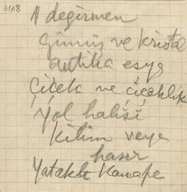 1118
1 değirmen
Gümüş ve kristal
antika eşya
Çiçek ve çiçeklik
Yol halısı
Kilim veya
hasır
Yataklı Kanape